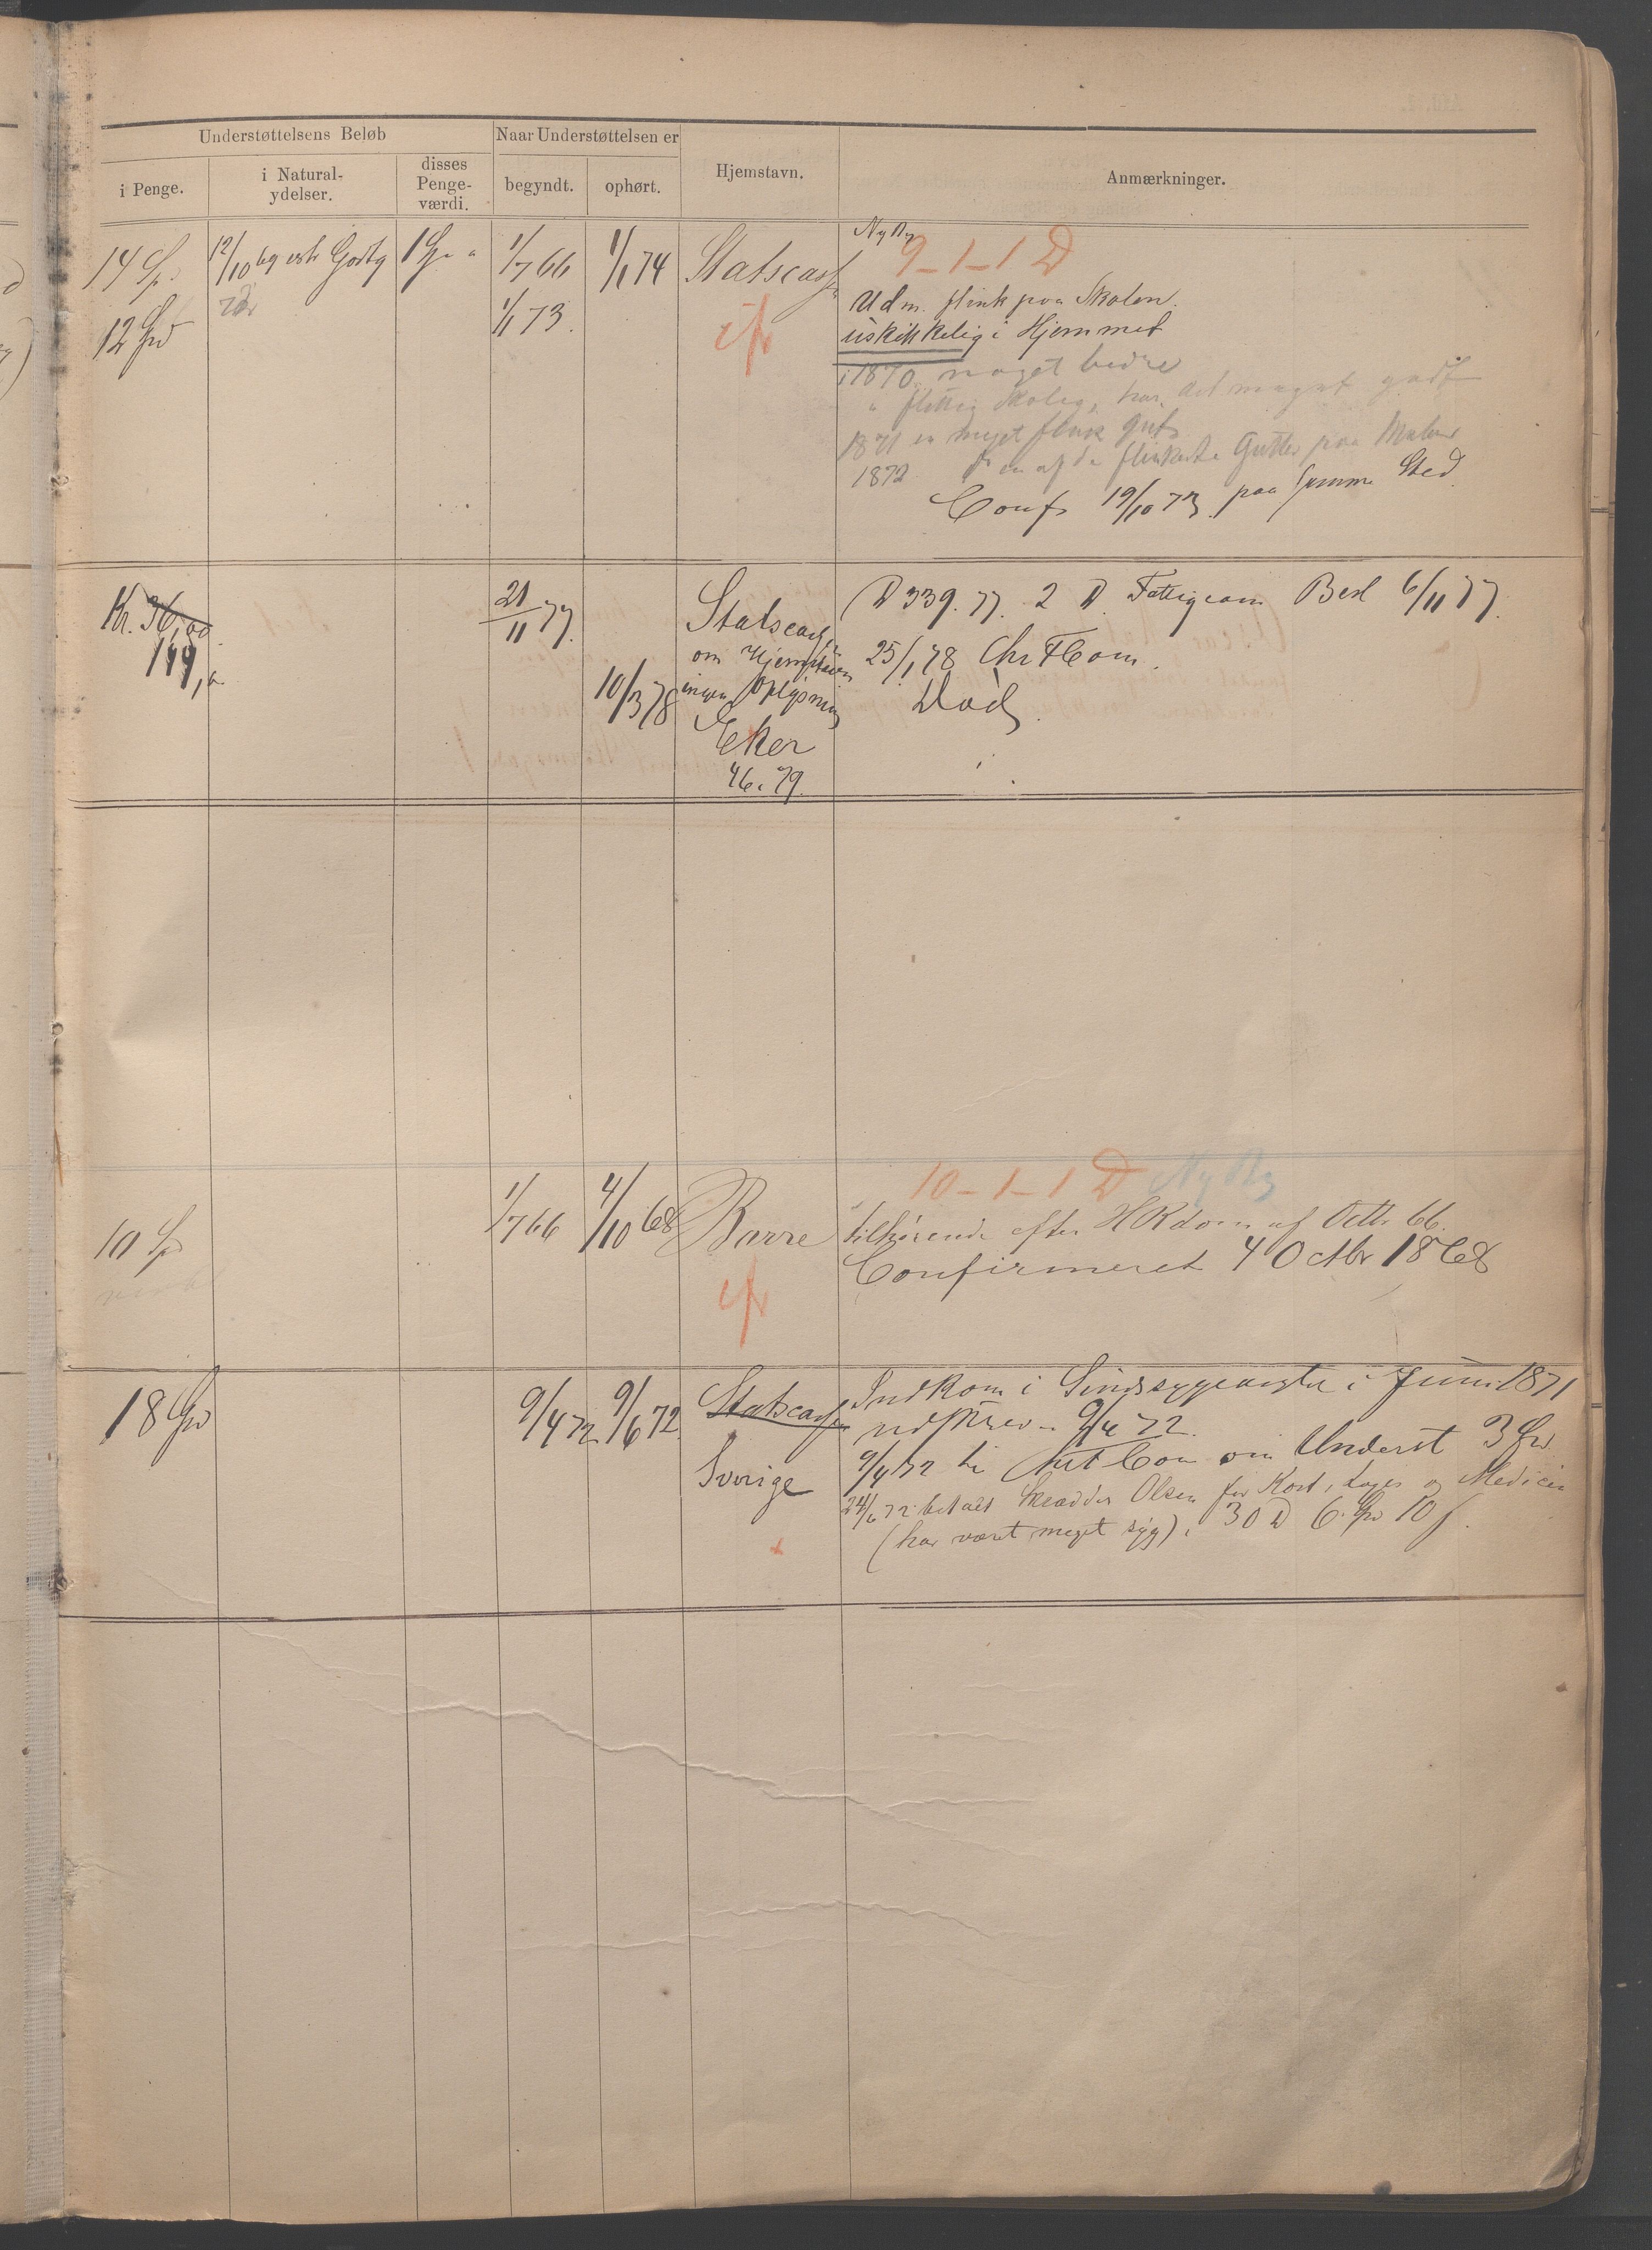 Understøttelsens Beløb
Naar Understøttelsen er
Hjemstavn.
Anmærkninger.
i Penge.
i Natural-
ydelser.
disses
Penge-
værdi.
begyndt.
ophørt.
14 Sp.
12/10 69
1/7 66
1/1 74
Statscassen
Ny Rg
9-1-1 D
12 Spd
1/1 73.
cfr
Udm. flink paa Skolen.
uskikkelig i Hjemmet
i 1870 noget bedre
" flittig Skoleg, har det meget godt
1871 en meget flink Gut
1872 en af de flinkeste Gutter paa
Conf. 19/10 73. paa samme Sted
Kr. 36,00
119,
21/11 77.
10/3 78
Statscassen
om Hjemstavn
ingen Oplysning
Eker
46. 79.
D 339. 77. 2 D. Fattigcom Besl 6/11 77.
25/1 78 Chr F Com.
Död.
10 Sp
1/7 66
4/10 68
Borre
cfr
10-1-1 D Ny Rg
tilhørende efter HRdom af Octb 66.
Confirmeret 4 Octbr 1868
18 Spd
9/4 72.
9/6 72.
Statscassen
Sverige
Indkom i Sindssygeasylet i Juni 1871
udskrev. 9/4 72.
9/4 72 Com om Underst 3 Spd
24/6 72 betalt Skrædder Olsen for Kost, Loges og Medicin
(har været meget syg), 30 D 6 Spd 10 s.